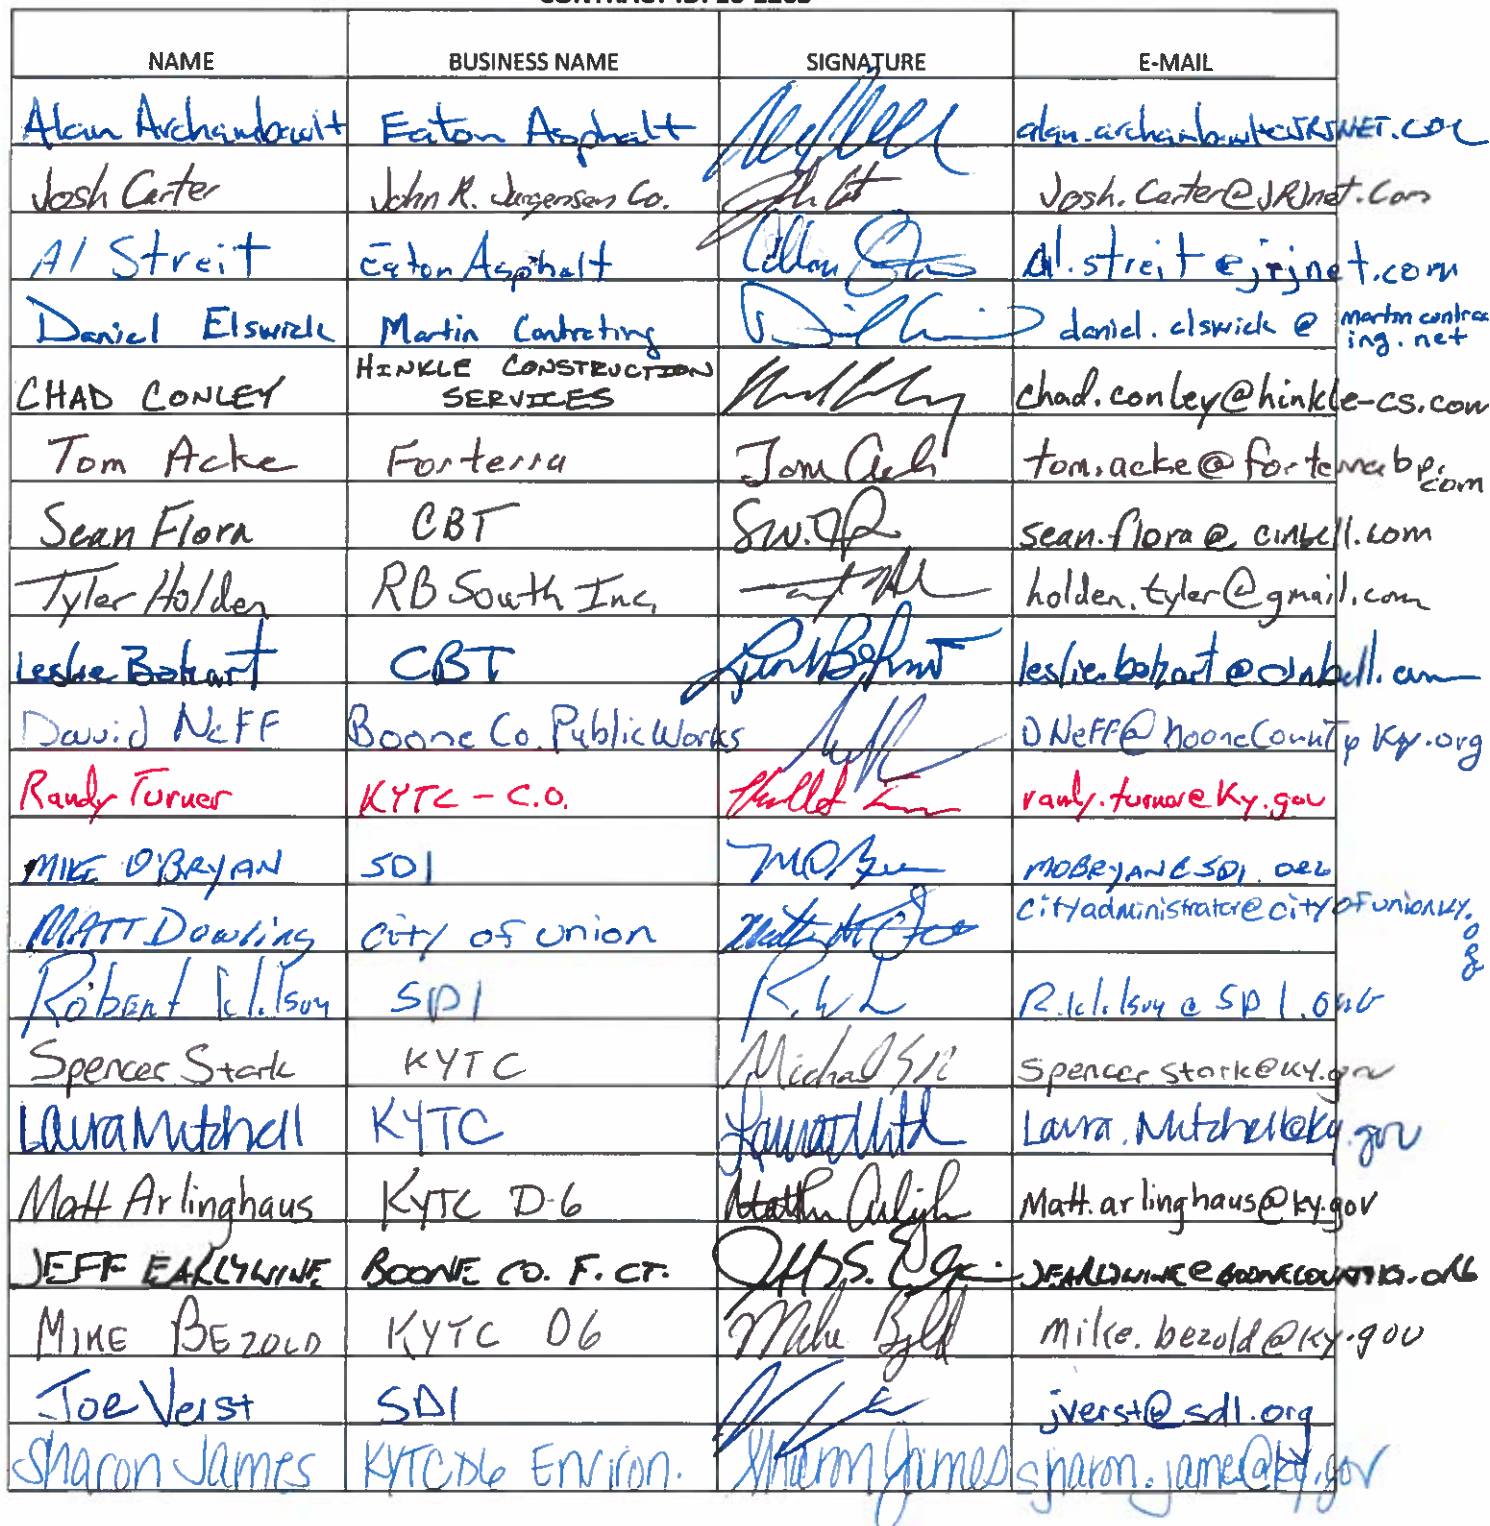 NAME BUSINESS NAME SIGNATURE E-MAIL
Alan Archambault Eaton Asphalt
Josh Carter John R. Jurgensen Co. Josh.Carter@JRJnet.Com
Al Streit Eaton Asphalt al.streit@jrjnet.com
Daniel Elswick Martin Contracting daniel.elswick@martincontracing.net
CHAD CONLEY HINKLE CONSTRUCTION SERVICES chad.conley@hinkle-cs.com
Tom Acke Forterra tom.acke@forterrabp.com
Sean Flora CBT sean.flora@cinbell.com
Tyler Holden RB South Inc. holden.tyler@gmail.com
Leslie CBT
David NeFF Boone Co. Public Works DNeFF@BooneCountyKy.org
Randy Turner KYTC - C.O. randy.turner@ky.gov
MIKE O'BRYAN SD1 MOBRYAN@SD1.ORG
MATT Dowling City of Union cityadministrator@cityofunionky.org
Robert Wilson SD1
Spencer Stark KYTC Spencer.stark@ky.gov
Laura Mitchell KYTC Laura.Mitchell@ky.gov
Matt Arlinghaus KYTC D-6 Matt.arlinghaus@ky.gov
JEFF EARLYWINE BOONE CO. F. CT. JEARLYWINE@BOONECOUNTYKY.ORG
MIKE BEZOLD KYTC D6 mike.bezold@ky.gov
Joe Verst SD1 jverst@sd1.org
Sharon James KYTC D6 Environ. Sharon James sharon.james@ky.gov